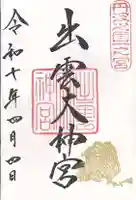 丹波國一之宮
出雲大神宮
令和七年四月四日